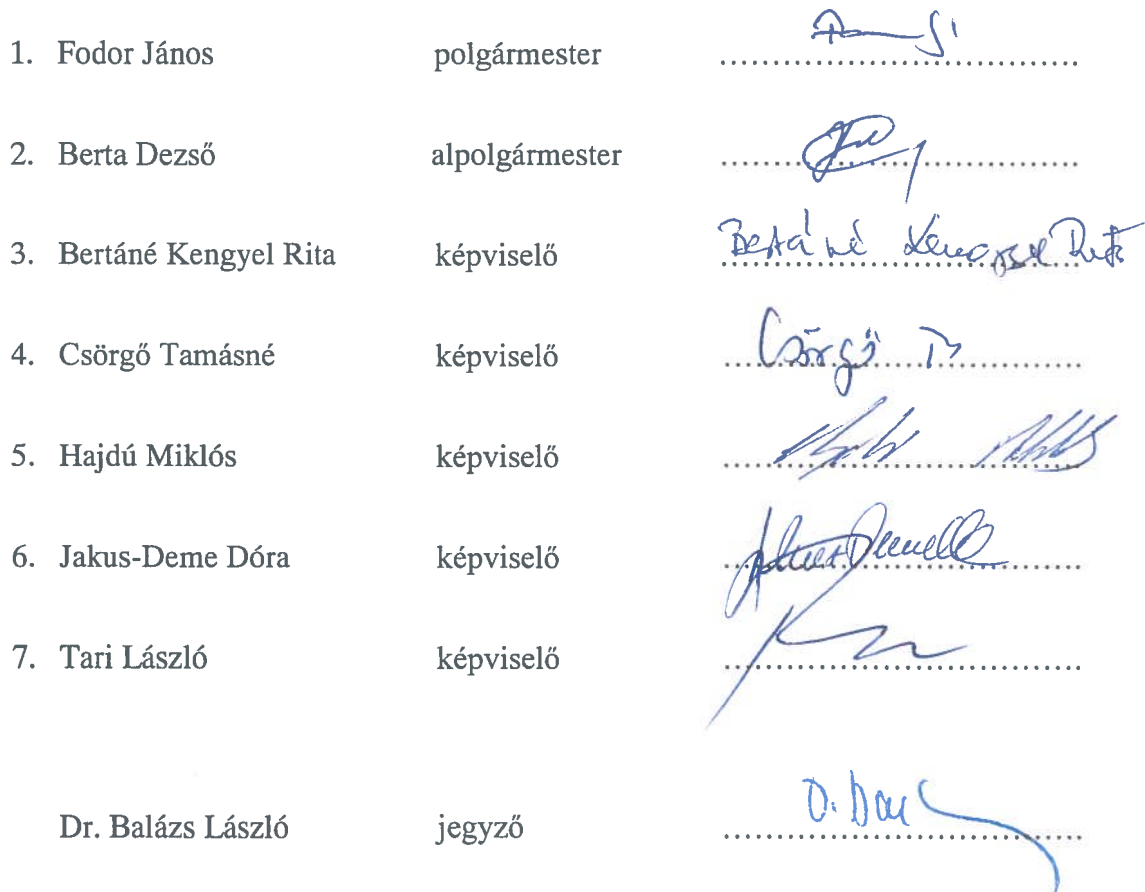 1. Fodor János polgármester
2. Berta Dezső alpolgármester
3. Bertáné Kengyel Rita képviselő Bertáné Kengyel Rita
4. Csörgő Tamásné képviselő Csörgő T
5. Hajdú Miklós képviselő
6. Jakus-Deme Dóra képviselő
7. Tari László képviselő
Dr. Balázs László jegyző